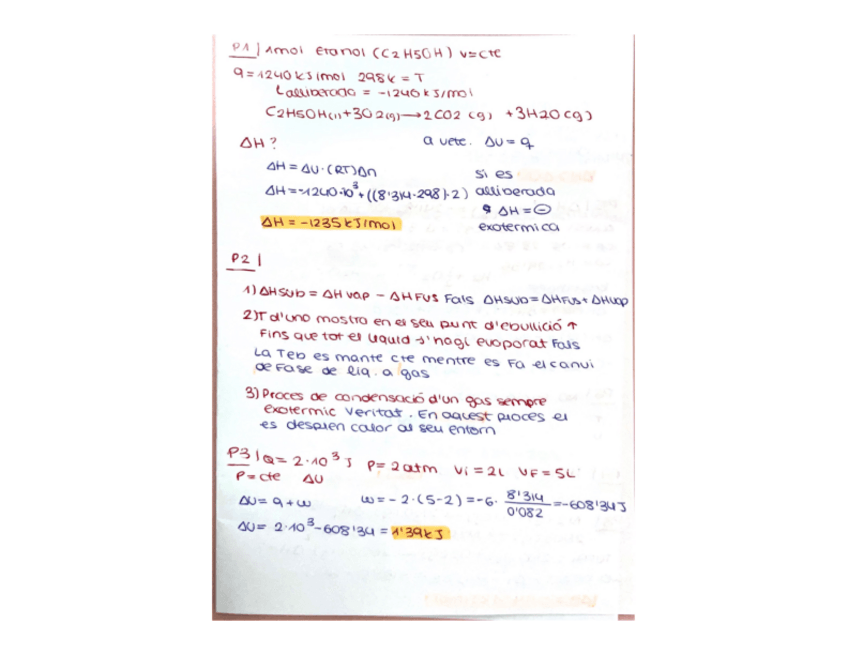 P1 | 1mol etanol (C2H5OH) V=cte
q=1240 kJ/mol 298k = T
↳ alliberada = -1240 kJ/mol
C2H5OH(l)+3O2(g)→2CO2 (g) +3H2O(g)
ΔH? a Vcte. ΔU = q
ΔH = ΔU·(RT)Δn si es
ΔH=-1240·10³+((8'314·298)·2) alliberada
ΔH=⊖
ΔH = -1235 kJ/mol exotermica
P2 |
1) ΔHsub = ΔHvap - ΔHFUS Fals ΔHsub=ΔHFus+ΔHvap
2) T d'una mostra en el seu punt d'ebullició ↑
Fins que tot el liquid s'hagi evaporat Fals
La Teb es mante cte mentre es Fa el canvi
de Fase de liq. a gas
3) Proces de condensació d'un gas sempre
exotermic Veritat. En aquest proces el
es despren calor al seu entorn
P3 | Q= 2·10³ J P= 2atm Vi = 2L VF = 5L
P=cte ΔU
ΔU= q+w w=-2·(5-2)=-6· 8'314/0'082 =-608'34J
ΔU= 2·10³-608'34 = 1'39kJ